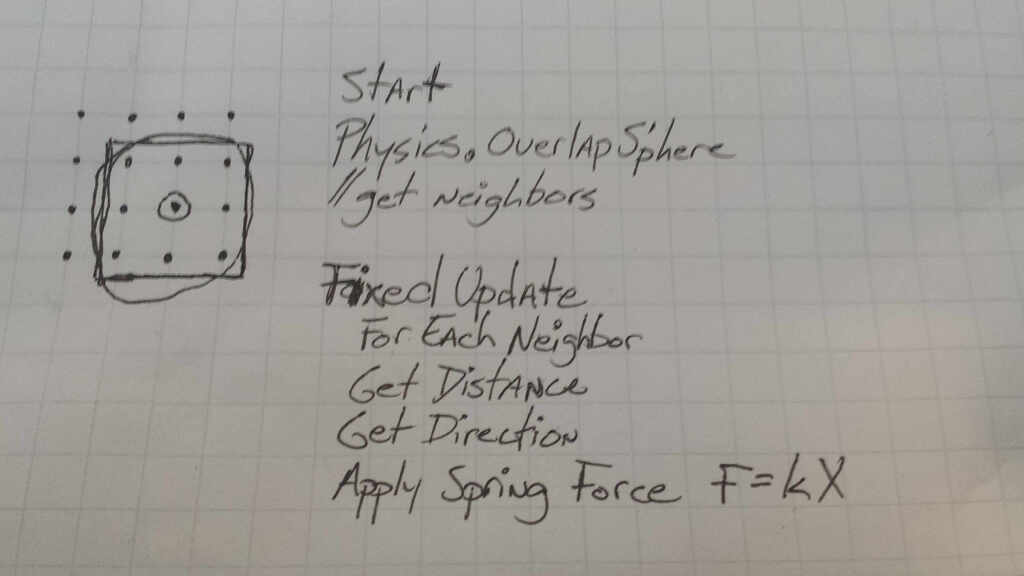 Start
Physics.OverlapSphere
//get neighbors
Fixed Update
For Each Neighbor
Get Distance
Get Direction
Apply Spring Force F=kX